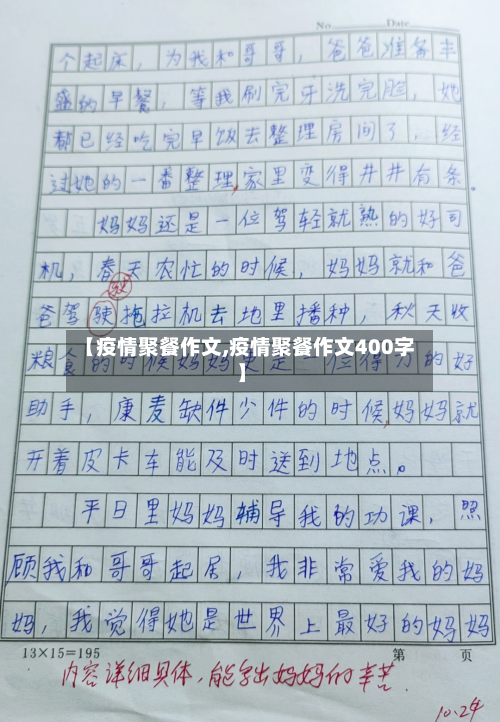 No. Date.
个起床，为我和哥哥，爸爸准备丰
盛的早餐，等我刷完牙洗完脸，她
都已经吃完早饭去整理房间了，经
过她的一番整理，家里变得井井有条。
妈妈还是一位驾轻就熟的好司
机，春天农忙的时候，妈妈就和爸
驶
爸驾驶拖拉机去地里播种，秋天收
【疫情聚餐作文,疫情聚餐作文400字
】
粮食的时候妈妈更是一位得力的好
助手，康麦缺件少件的时候，妈妈就
开着皮卡车能及时送到地点。
平日里妈妈辅导我的功课，照
顾我和哥哥起居，我非常爱我的妈
妈，我觉得她是世界上最好的妈妈
13×15=195 第 页
内容详细具体，能写出妈妈的辛苦.
10.24